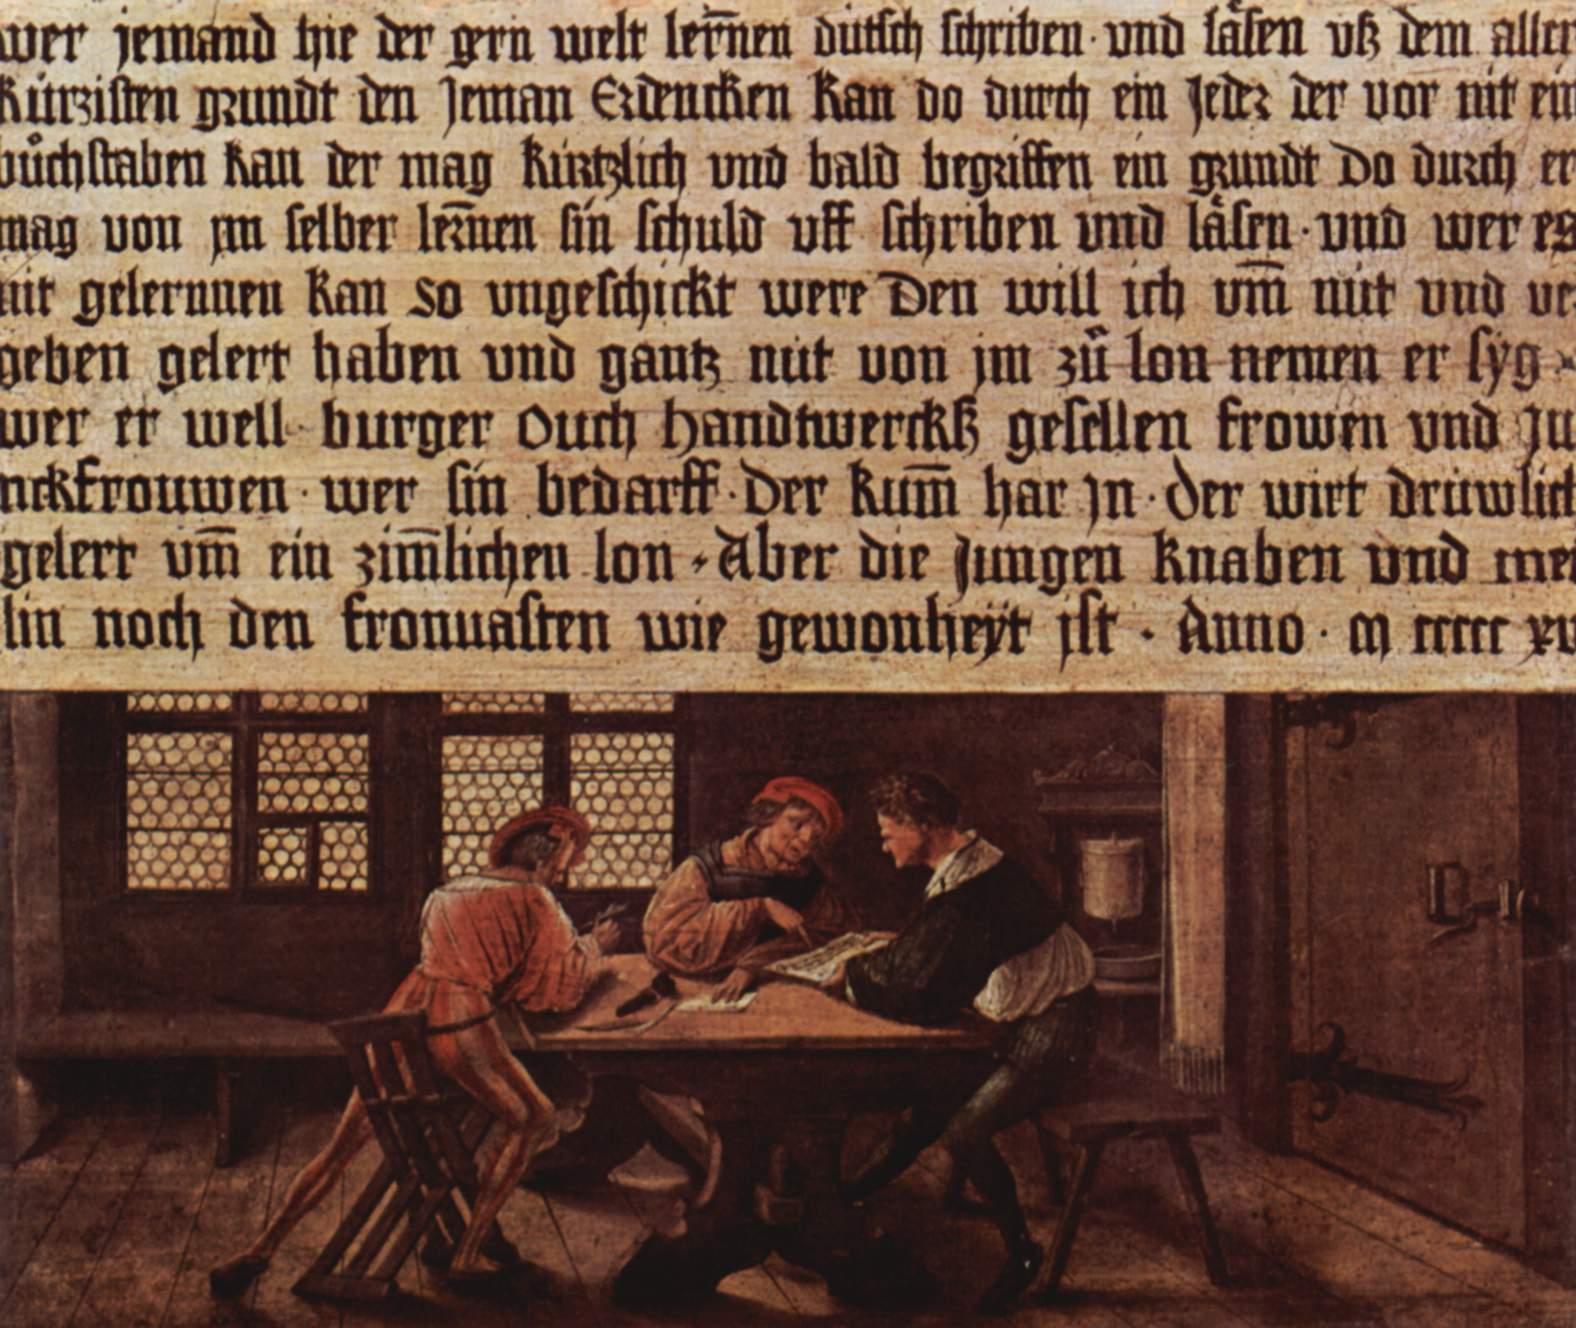 wer jemand hie der gern welt ler̅nen dütsch schriben · vnd läsen vß dem aller
kürzisten grundt den Jeman Erdencken kan do durch ein Jeder der vor nit ein
bůchstaben kan der mag kürtzlich vnd bald begriffen ein grundt Do durch er
mag von jm selber ler̅nen sin schuld vff schriben vnd läsen · vnd wer es
nit gelernnen kan so vngeschickt were Den will ich vm̅ nüt vnd ver
geben gelert haben vnd gantz nüt von jm zů lon nemen er syg
wer er well · burger ouch handtwerckß gesellen frowen vnd Ju
nckfrouwen · wer sin bedarff · Der kum̅ har jn · der wirt drüwlich
gelert vm̅ ein zim̅lichen lon · Aber die Jungen knaben vnd mei
lin noch den fronuasten wie gewonheÿt jst · Anno · m ccccc xv